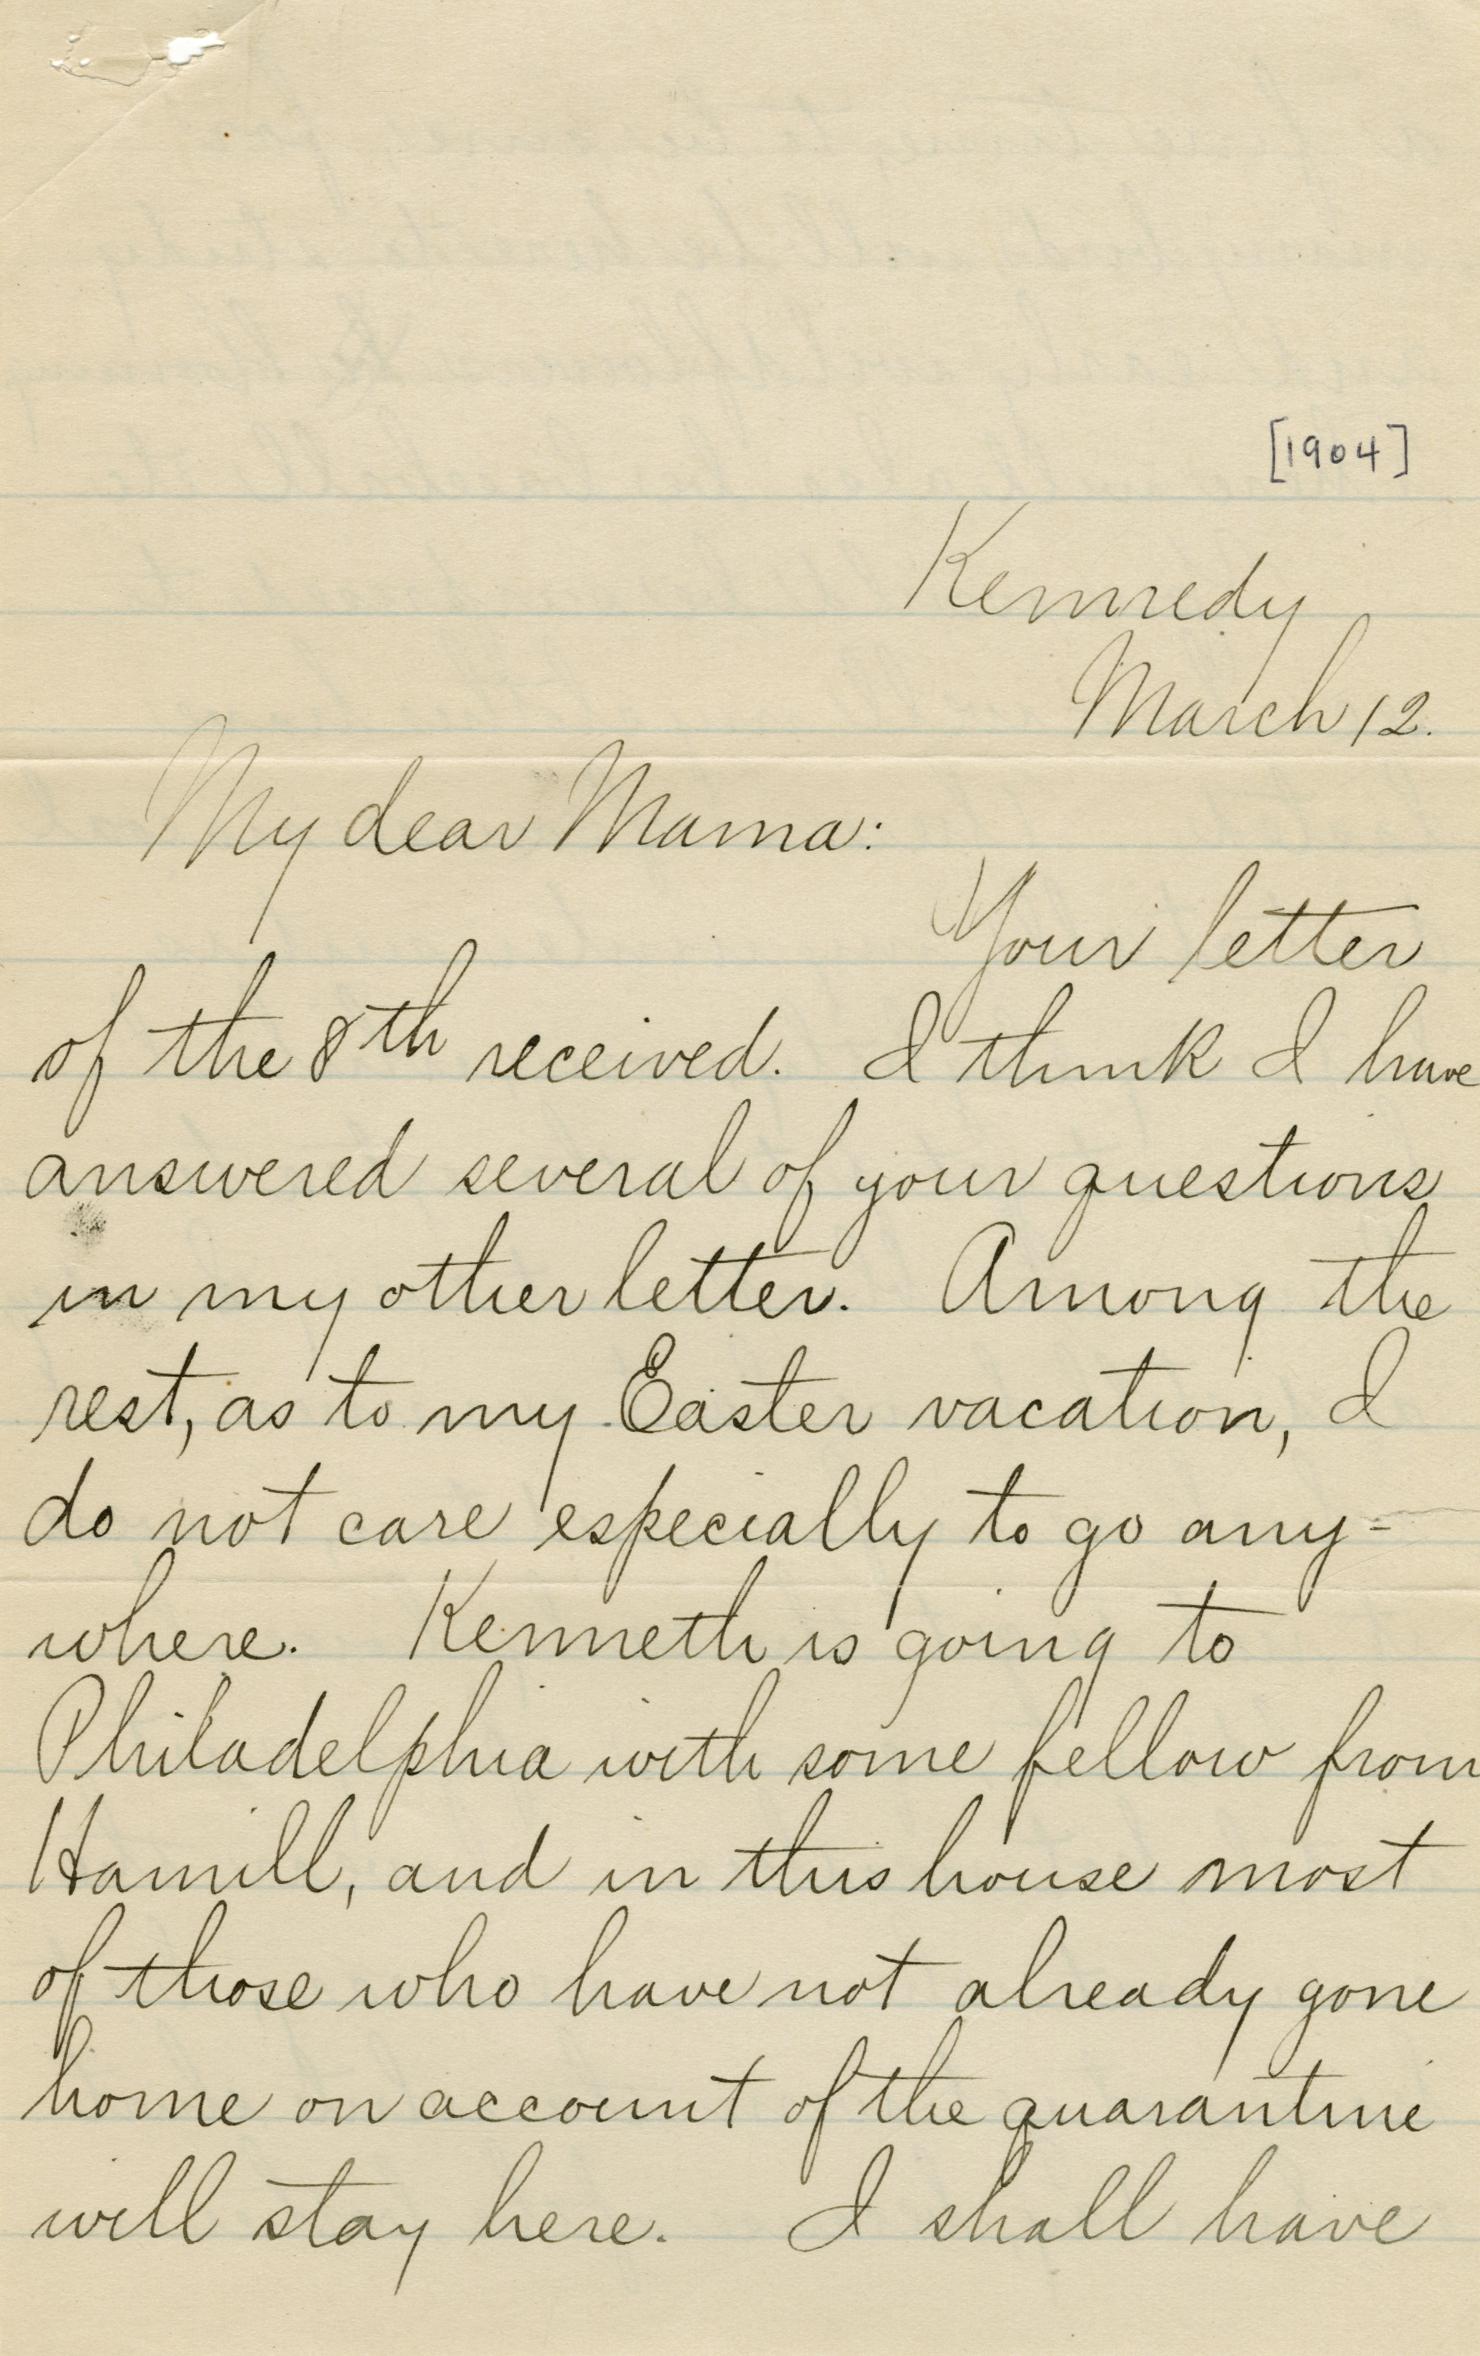 [1904]
Kennedy
March 12.
My dear Mama:
Your letter
of the 8th received. I think I have
answered several of your questions
in my other letter. Among the
rest, as to my Easter vacation, I
do not care especially to go any-
where. Kenneth is going to
Philadelphia with some fellow from
Hamill, and in this house most
of those who have not already gone
home on account of the quarantine
will stay here. I shall have